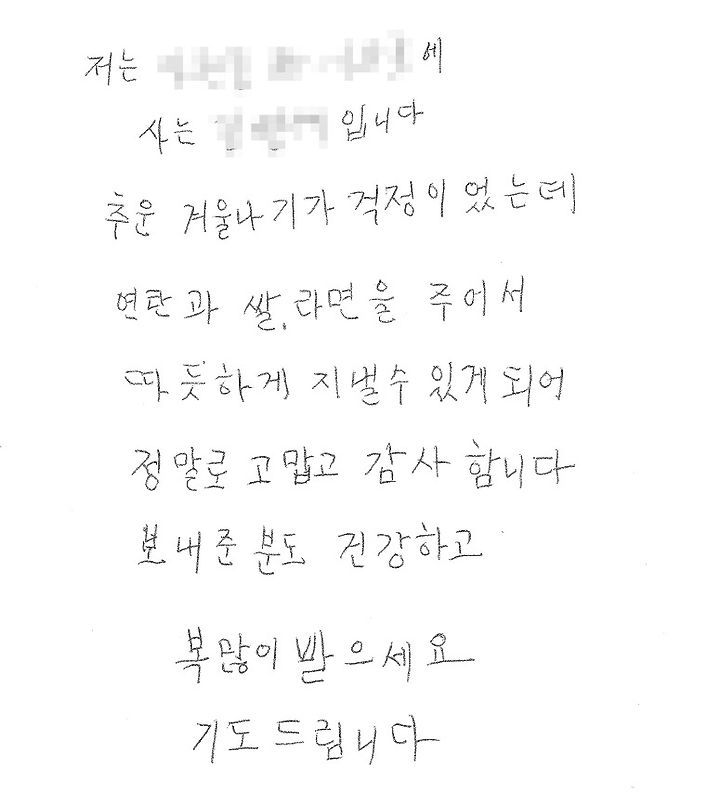 저는 에
사는 입니다
추운 겨울나기가 걱정이 었는데
연탄과 쌀, 라면을 주어서
따듯하게 지낼수 있게 되어
정말로 고맙고 감사 함니다
보내준 분도 건강하고
복많이 받으세요
기도드림니다